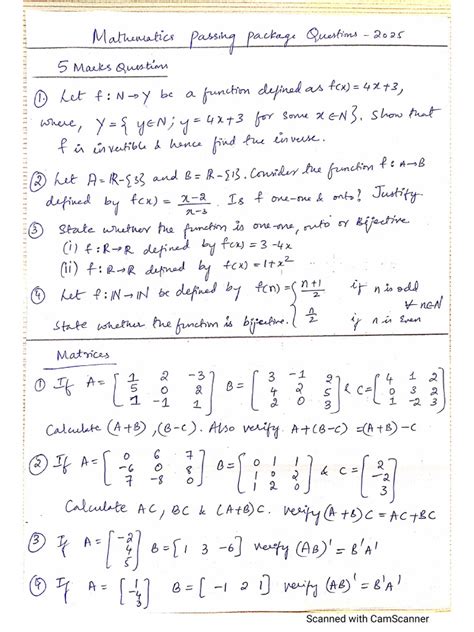 Mathematics Passing package Questions - 2025
5 Marks Questions
① Let f : N→Y be a function defined as f(x) = 4x+3,
where, Y = { y∈N ; y = 4x+3 for some x∈N }. Show that
f is invertible & hence find the inverse.
② Let A = R-{3} and B = R-{1}. Consider the function f : A→B
defined by f(x) = x-2/x-3. Is f one-one & onto? Justify
③ State whether the function is one-one, onto or Bijective
(i) f : R→R defined by f(x) = 3-4x
(ii) f : R→R defined by f(x) = 1+x²
④ Let f : N→N be defined by f(n) = { n+1/2 if n is odd
∀ n∈N
n/2 if n is Even
State whether the function is bijective.
Matrices
① If A = [1 2 -3
5 0 2
1 -1 1] B = [3 -1 2
4 2 5
2 0 3] & C = [4 1 2
0 3 2
1 -2 3]
Calculate (A+B), (B-C). Also verify A+(B-C) = (A+B)-C
② If A = [0 6 7
-6 0 8
7 -8 0] B = [0 1 1
1 0 2
1 2 0] & C = [2
-2
3]
Calculate AC, BC & (A+B)C. verify (A+B)C = AC+BC
③ If A = [-2
4
5] B = [1 3 -6] verify (AB)' = B'A'
④ If A = [1
-4
3] B = [-1 2 1] verify (AB)' = B'A'
Scanned with CamScanner